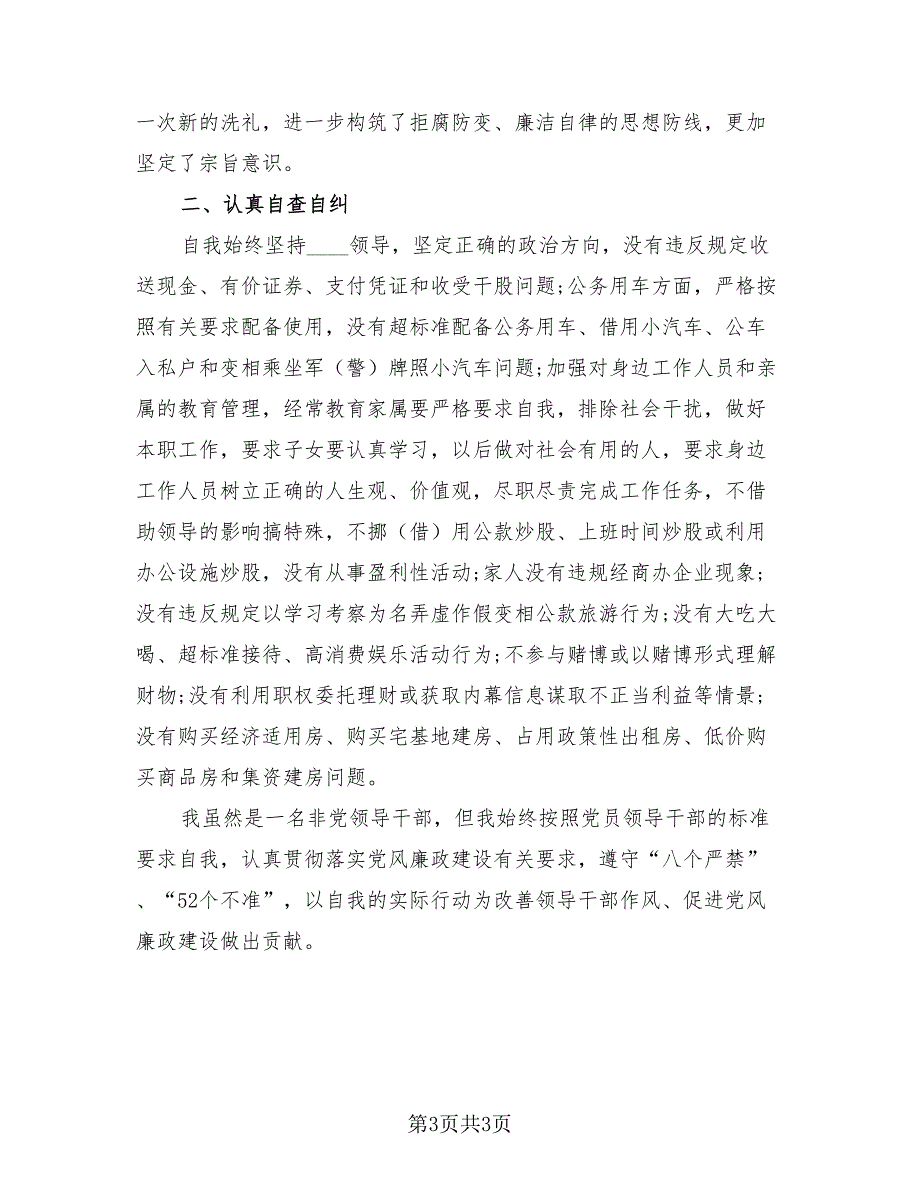 一次新的洗礼，进一步构筑了拒腐防变、廉洁自律的思想防线，更加
坚定了宗旨意识。
二、认真自查自纠
自我始终坚持____领导，坚定正确的政治方向，没有违反规定收
送现金、有价证券、支付凭证和收受干股问题;公务用车方面，严格按
照有关要求配备使用，没有超标准配备公务用车、借用小汽车、公车
入私户和变相乘坐军（警）牌照小汽车问题;加强对身边工作人员和亲
属的教育管理，经常教育家属要严格要求自我，排除社会干扰，做好
本职工作，要求子女要认真学习，以后做对社会有用的人，要求身边
工作人员树立正确的人生观、价值观，尽职尽责完成工作任务，不借
助领导的影响搞特殊，不挪（借）用公款炒股、上班时间炒股或利用
办公设施炒股，没有从事盈利性活动;家人没有违规经商办企业现象;
没有违反规定以学习考察为名弄虚作假变相公款旅游行为;没有大吃大
喝、超标准接待、高消费娱乐活动行为;不参与赌博或以赌博形式理解
财物;没有利用职权委托理财或获取内幕信息谋取不正当利益等情景;
没有购买经济适用房、购买宅基地建房、占用政策性出租房、低价购
买商品房和集资建房问题。
我虽然是一名非党领导干部，但我始终按照党员领导干部的标准
要求自我，认真贯彻落实党风廉政建设有关要求，遵守“八个严禁”
、“52个不准”，以自我的实际行动为改善领导干部作风、促进党风
廉政建设做出贡献。
第3页共3页